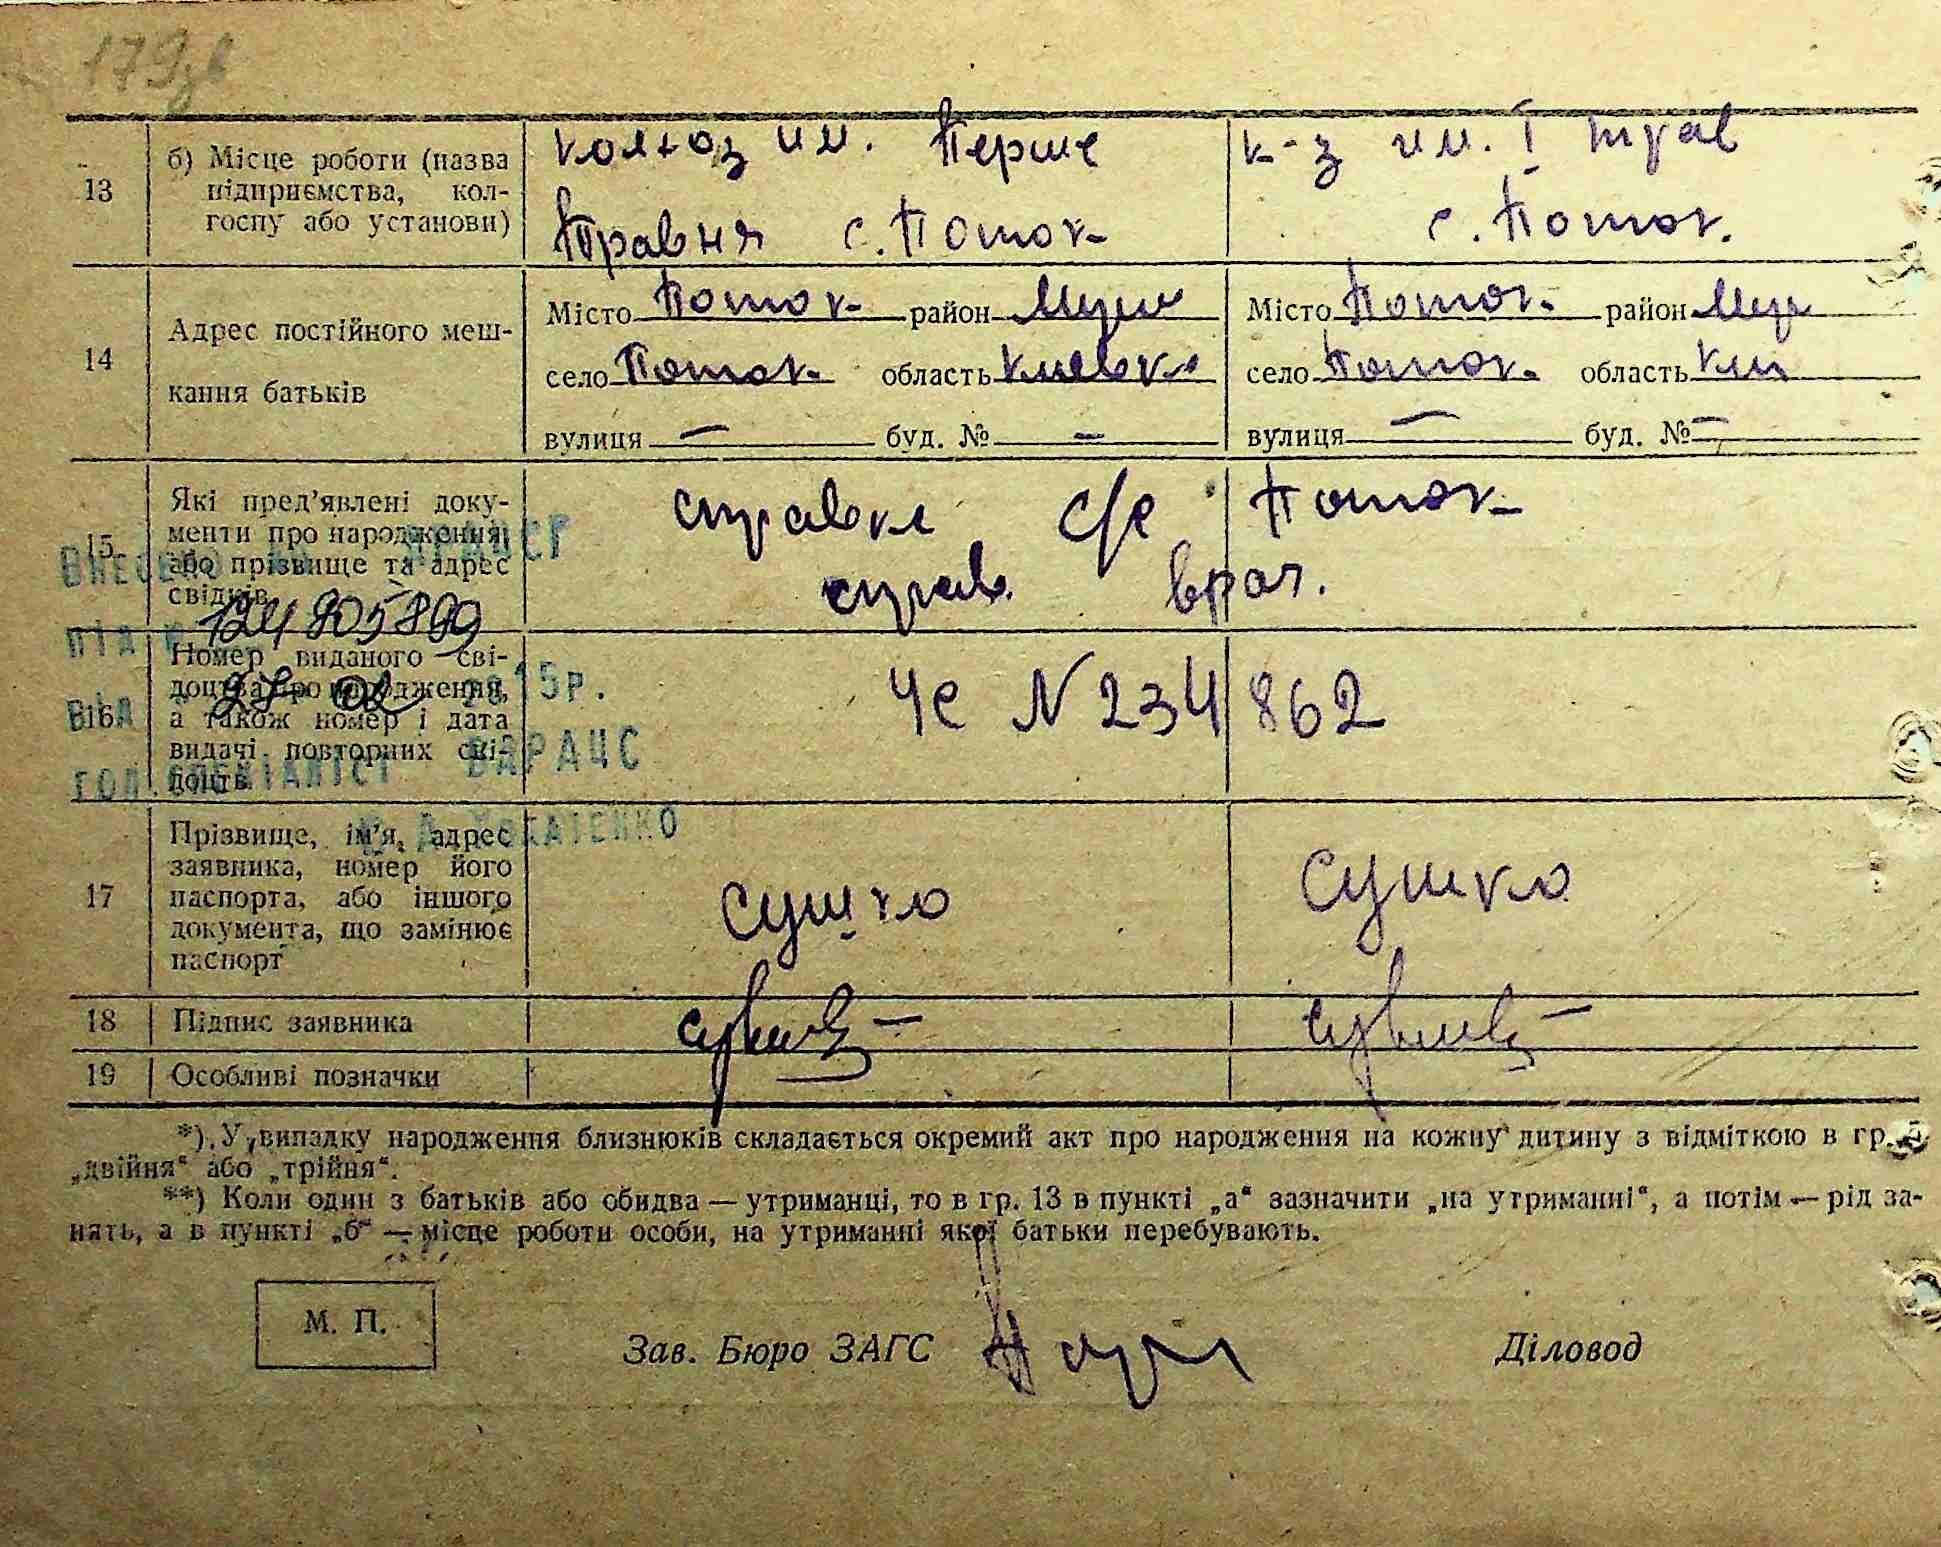 179зв
13
б) Місце роботи (назва
підприємства, кол-
госпу або установи)
колхоз им. Перше
Травня с. Поток
к-з им. І трав
с. Поток.
14
Адрес постійного меш-
кання батьків
Місто Поток район Мир
село Поток область Киевск
вулиця — буд. № —
Місто Поток район Мир
село Поток область Ки
вулиця — буд. № —
15
Які пред'явлені доку-
менти про народження,
або прізвище та адрес
свідків
справка с/с Поток
справ. врач.
16
Номер виданого сві-
доцтва про народження,
а також номер і дата
видачі повторних сві-
доцтв
ЧС N 234862
ВНЕСЕНО ДО ДРАЦСГ
ПІД
ВІД 27 02 2015р.
ГОЛ.СПЕЦІАЛІСТ ВДРАЦС
17
Прізвище, ім'я, адрес
заявника, номер його
паспорта, або іншого
документа, що замінює
паспорт
Сушко
Сушко
18
Підпис заявника
19
Особливі позначки
*) У випадку народження близнюків складається окремий акт про народження на кожну дитину з відміткою в гр. 5
„двійня“ або „трійня“.
**) Коли один з батьків або обидва — утриманці, то в гр. 13 в пункті „а“ зазначити „на утриманні“, а потім — рід за-
нять, а в пункті „б“ — місце роботи особи, на утриманні якої батьки перебувають.
М. П.
Зав. Бюро ЗАГС
Діловод